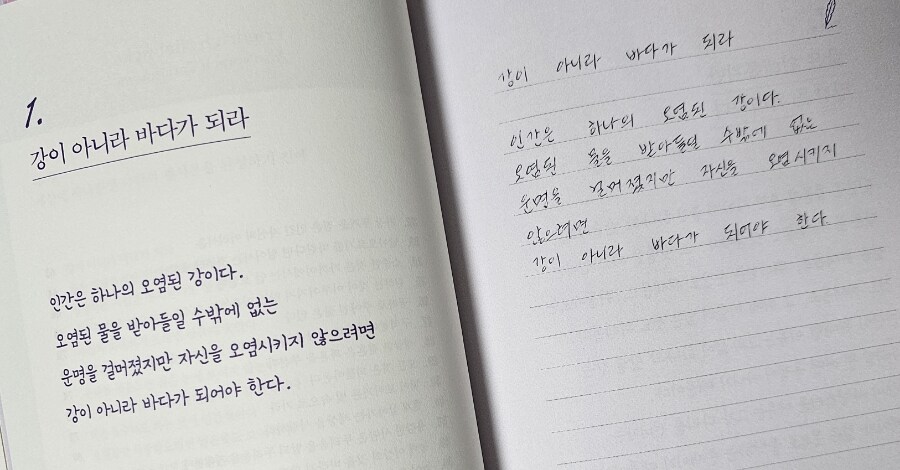 1.
강이 아니라 바다가 되라
인간은 하나의 오염된 강이다.
오염된 물을 받아들일 수밖에 없는
운명을 걸머졌지만 자신을 오염시키지 않으려면
강이 아니라 바다가 되어야 한다.
강이 아니라 바다가 되라
인간은 하나의 오염된 강이다.
오염된 물을 받아들일 수밖에 없은
운명을 걸머졌지만 자신을 오염시키지
않으려면
강이 아니라 바다가 되어야 한다.